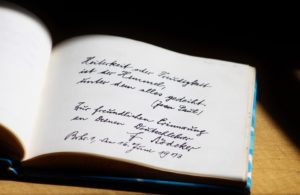 Heiterkeit oder Freudigkeit
ist der Himmel,
unter dem alles gedeiht.
(Jean Paul)
Zur freundlichen Erinnerung
an Ihren Deutschlehrer
F. Rödeker
den 16. Juni 19